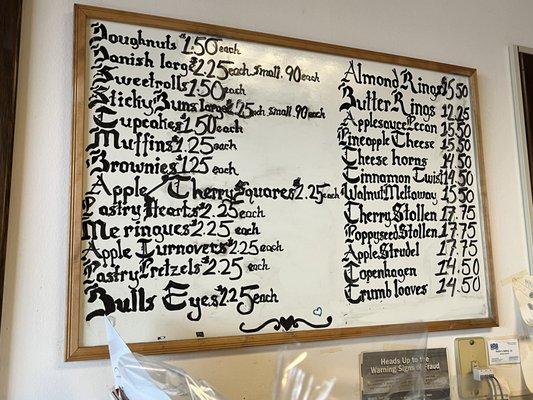 Doughnuts $1.50 each
Danish large $2.25 each small .90 each
Sweetrolls $1.50 each
Sticky Buns large $2.25 each small .90 each
Cupcakes $1.50 each
Muffins $1.25 each
Brownies $1.25 each
Apple / Cherry Squares $2.25 each
Pastry Hearts $2.25 each
Meringues $2.25 each
Apple Turnovers $2.25 each
Pastry Pretzels $2.25 each
Bulls Eyes $2.25 each
Almond Rings $15.50
Butter Rings 12.25
Applesauce Pecan 15.50
Pineapple Cheese 15.50
Cheese horns 14.50
Cinnamon Twist 14.50
Walnut McKaway 15.50
Cherry Stollen 17.75
Poppyseed Stollen 17.75
Apple Strudel 17.75
Copenhagen 14.50
Crumb loaves 14.50
Heads Up to the
Warning Signs of Fraud